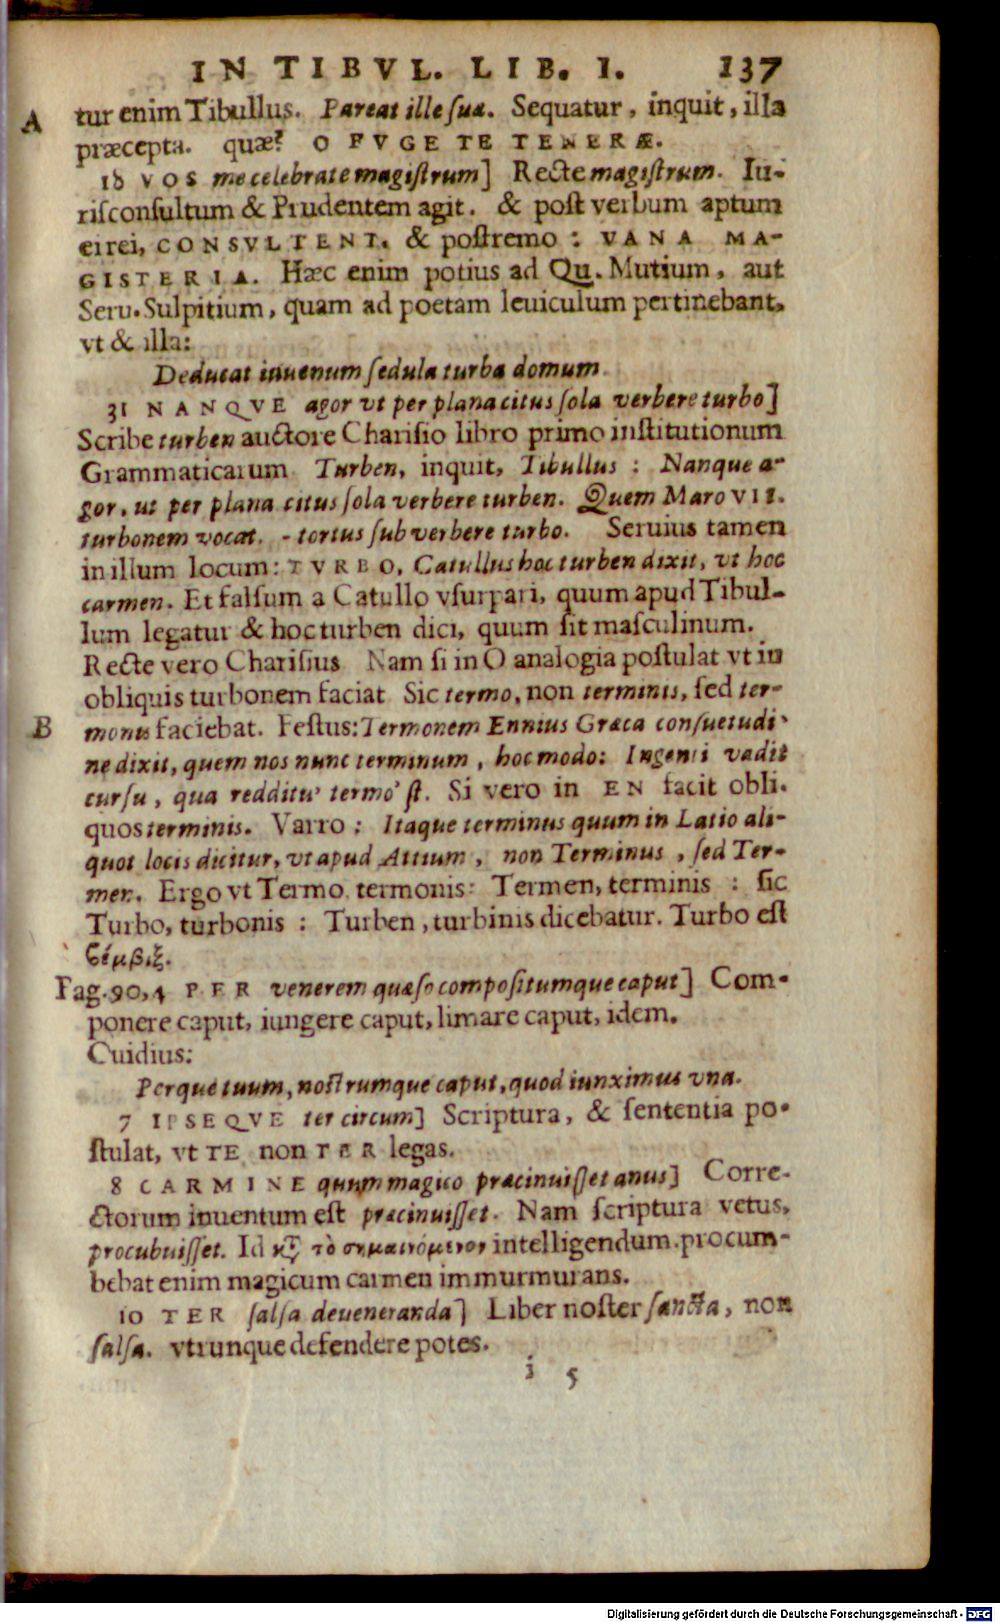 IN TIBVL. LIB. I. 137
A tur enim Tibullus. Pareat ille suæ. Sequatur, inquit, illa
præcepta. quæ? O FVGE TE TENERÆ.
18 VOS me celebrate magistrum] Recte magistrum. Iu-
risconsultum & Prudentem agit. & post verbum aptum
ei rei, CONSVLTENT. & postremo: VANA MA-
GISTERIA. Hæc enim potius ad Qu. Mutium, aut
Seru. Sulpitium, quam ad poetam leuiculum pertinebant,
vt & illa:
Deducat iuuenum sedula turba domum.
31 NANQVE agor vt per plana citus sola verbere turbo]
Scribe turben auctore Charisio libro primo institutionum
Grammaticarum Turben, inquit, Tibullus: Nanque a-
gor, ut per plana citus sola verbere turben. Quem Maro VII.
turbonem vocat. - tortus sub verbere turbo. Seruius tamen
in illum locum: TVRBO, Catullus hoc turben dixit, vt hoc
carmen. Et falsum a Catullo vsurpari, quum apud Tibul-
lum legatur & hoc turben dici, quum sit masculinum.
Recte vero Charisius Nam si in O analogia postulat vt in
obliquis turbonem faciat Sic termo, non terminis, sed ter-
B monis faciebat. Festus: Termonem Ennius Græca consuetudi-
ne dixit, quem nos nunc terminum, hoc modo: Ingenti vadit
cursu, qua redditu' termo' st. Si vero in EN facit obli-
quos terminis. Varro: Itaque terminus quum in Latio ali-
quot locis dicitur, vt apud Attium, non Terminus, sed Ter-
men. Ergo vt Termo termonis: Termen, terminis: sic
Turbo, turbonis: Turben, turbinis dicebatur. Turbo est
ϛέμβιξ.
Pag. 90, 4 PER venerem quæso compositumque caput] Com-
ponere caput, iungere caput, limare caput, idem.
Ouidius:
Perque tuum, nostrumque caput, quod iunximus vna.
7 IPSEQVE ter circum] Scriptura, & sententia po-
stulat, vt TE non TER legas.
8 CARMINE quum magico præcinuisset anus] Corre-
ctorum inuentum est præcinuisset. Nam scriptura vetus,
procubuisset. Id κτ τὸ σημαινόμενον intelligendum. procum-
bebat enim magicum carmen immurmurans.
10 TER salsa deueneranda] Liber noster sancta, non
salsa. vtrunque defendere potes.
i 5
Digitalisierung gefördert durch die Deutsche Forschungsgemeinschaft - DFG